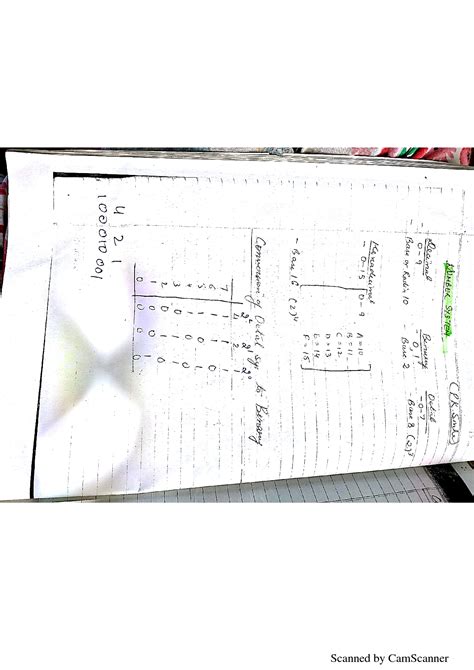 NUMBER SYSTEM
Decimal
- 0-9
- Base or Radix 10
Binary
- 0,1
Base 2
Octal
- 0-7
Base 8 (2)³
Hexadecimal
- 0-15
0-9
A=10
B=11
C=12
D=13
E=14
F=15
- Base 16 (2)⁴
Conversion of Octal Sys. to Binary
2² 2¹ 2⁰
4 2 1
7 1 1 1
6 1 1 0
5 1 0 1
4 1 0 0
3 0 1 1
2 0 1 0
1 0 0 1
0 0 0 0
4 2 1
100010001
Scanned by CamScanner